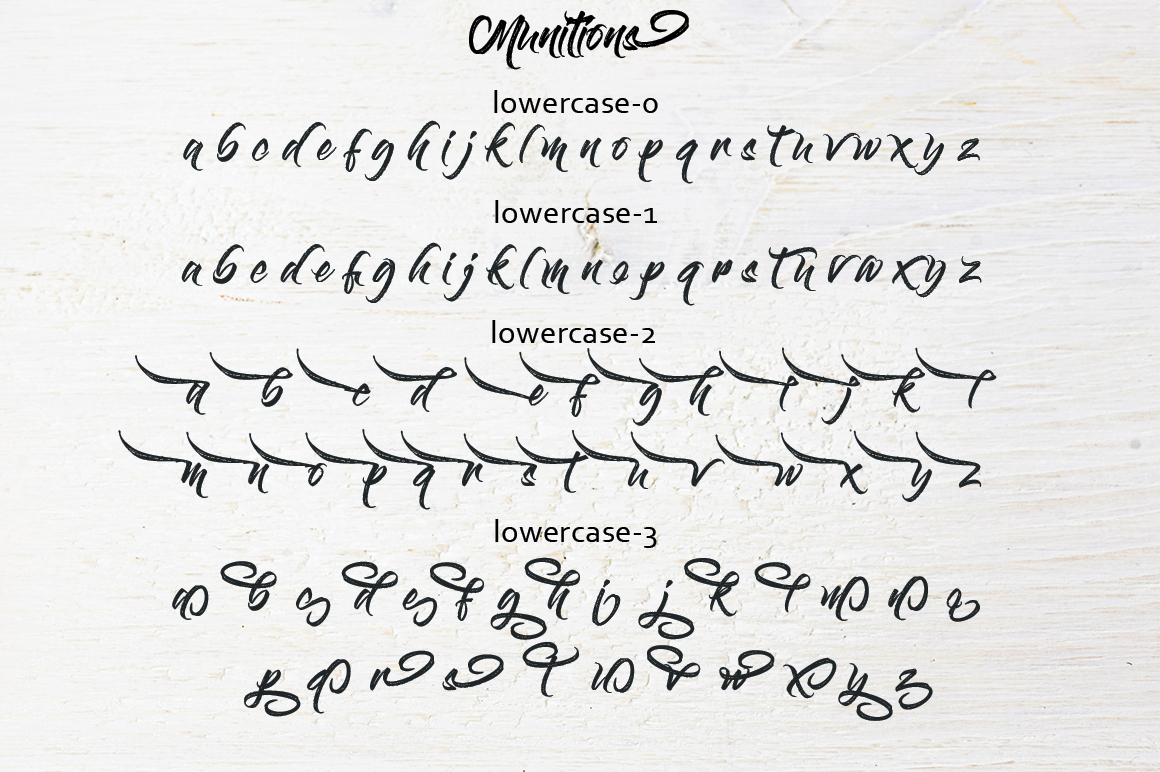 Munitions
lowercase-0
a b c d e f g h i j k l m n o p q r s t u v w x y z
lowercase-1
a b c d e f g h i j k l m n o p q r s t u v w x y z
lowercase-2
a b c d e f g h i j k l
m n o p q r s t u v w x y z
lowercase-3
a b c d e f g h i j k l m n o
p q r s t u v w x y z